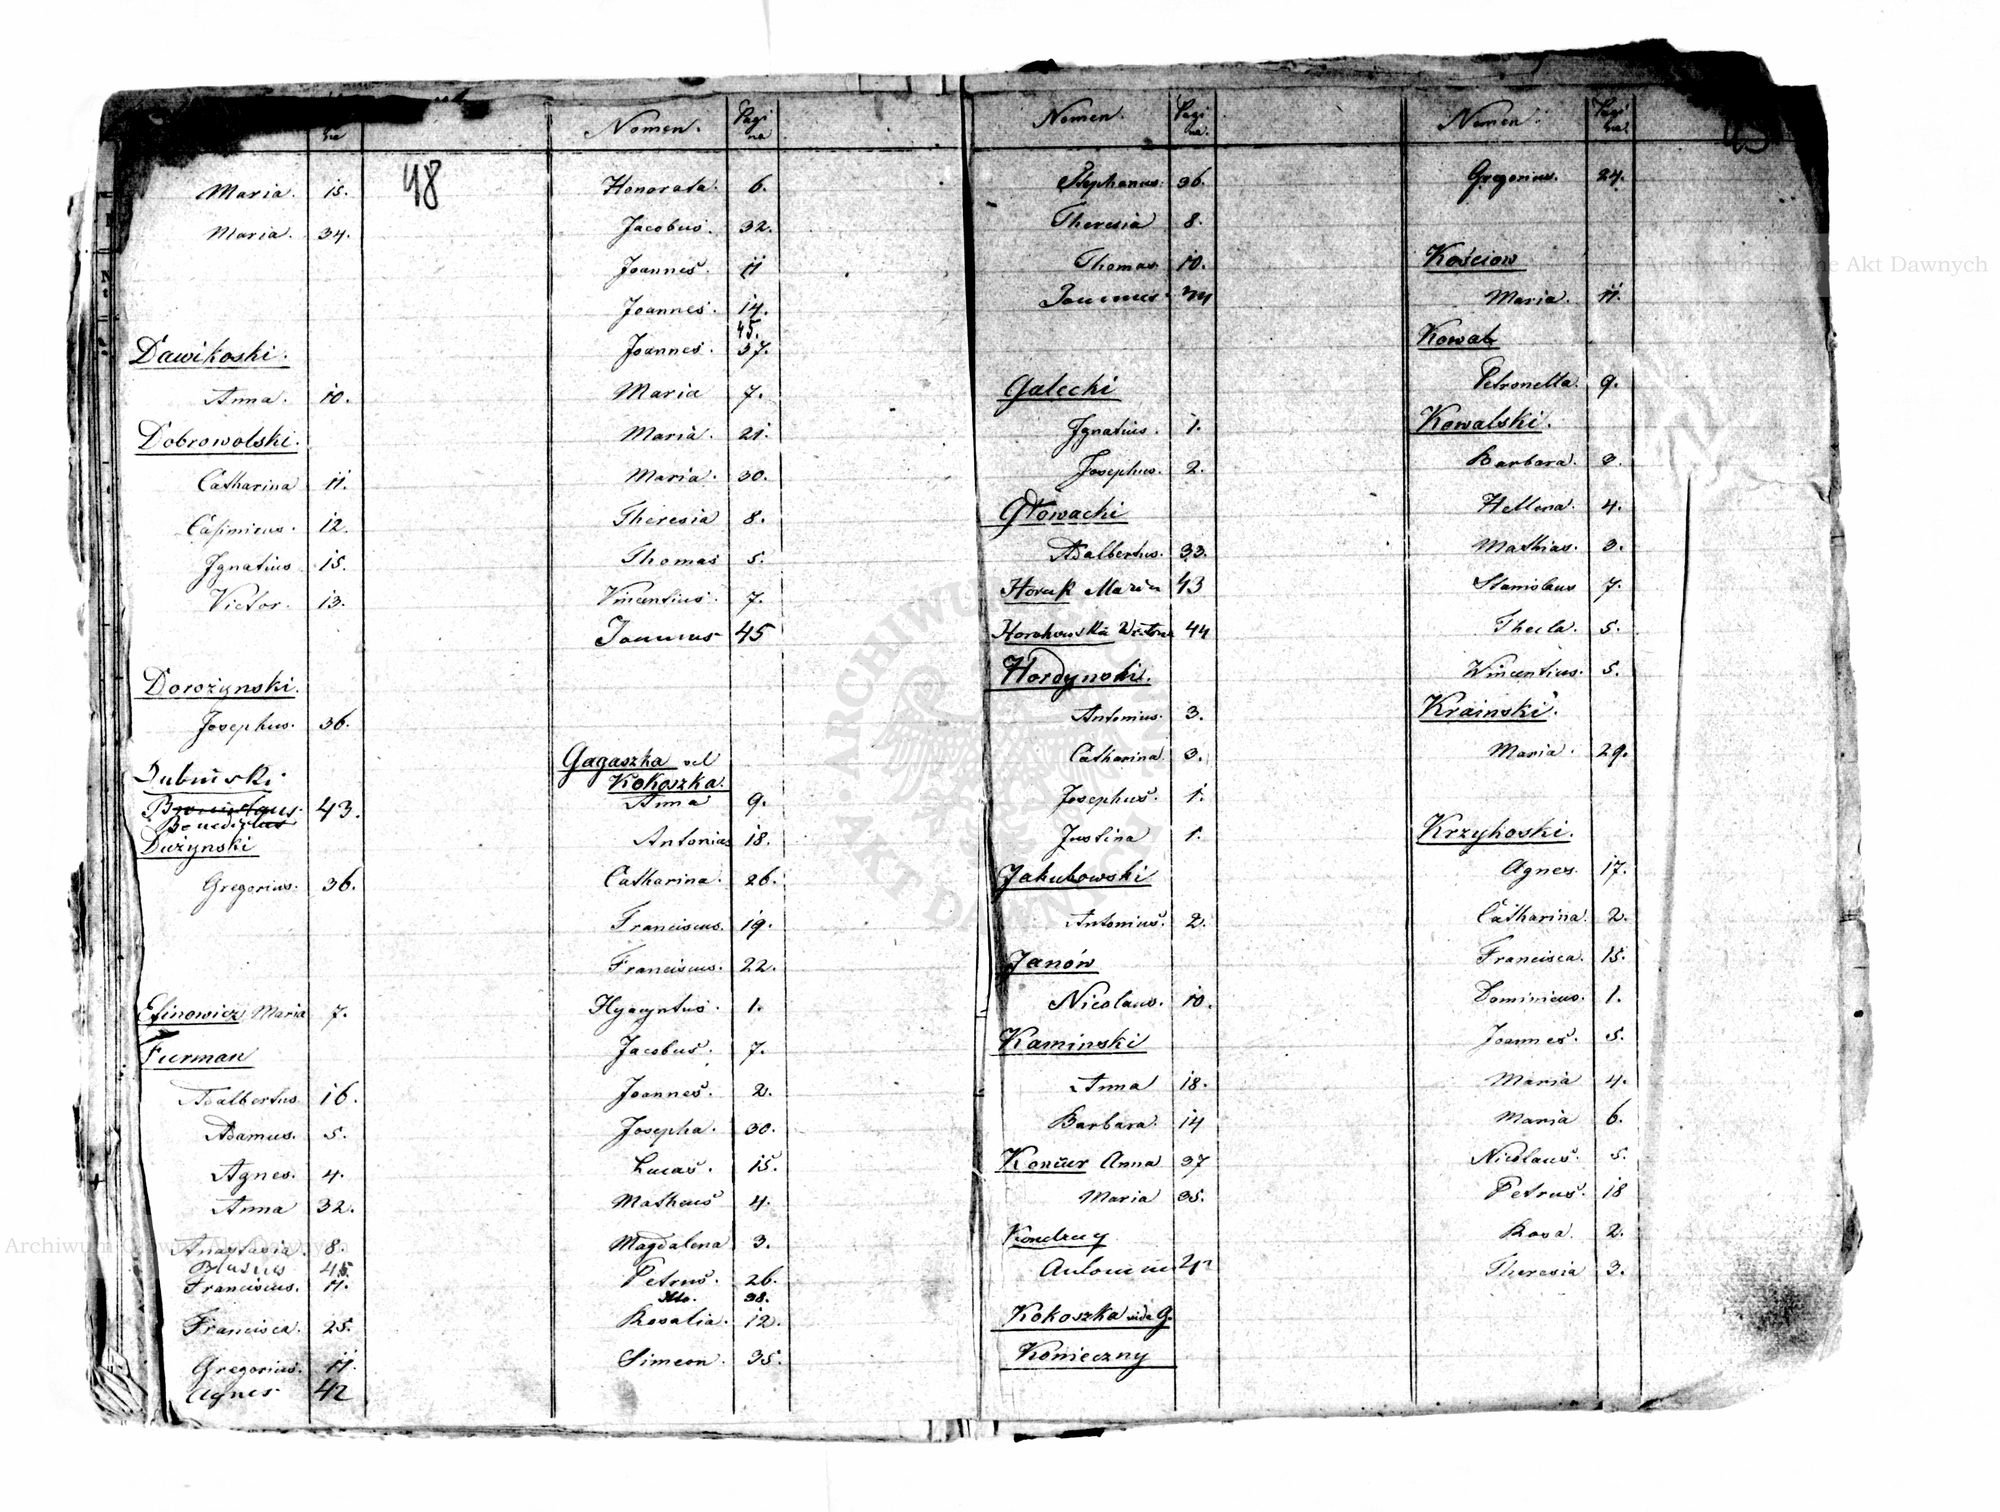 na
48
Maria. 15.
Maria. 34.
Dawikoski.
Anna. 10.
Dobrowolski.
Catharina 11.
Casimirus. 12.
Jgnatius 15.
Victor. 13.
Dorożynski.
Josephus. 36.
Dubinski
Bronislaus. 43.
Benedictus
Dużynski
Gregorius. 36.
Efinowicz Maria 7.
Furman
Adalbertus. 16.
Adamus. 5.
Agnes. 4.
Anna 32.
Anastasia. 8.
Blasius 45
Franciscus. 11.
Francisca. 25.
Gregorius. 11.
Agnes 42
Nomen. Pagi
na
Honorata. 6.
Jacobus. 32.
Joannes. 11
Joannes. 14.
45.
Joannes. 37.
Maria 7.
Maria. 21.
Maria. 30.
Theresia 8.
Thomas 5.
Vincentius. 7.
Joannes 45
Gagaszka vel
Kokoszka.
Anna 9.
Antonius 18.
Catharina. 26.
Franciscus. 19.
Franciscus. 22.
Hyacyntus. 1.
Jacobus. 7.
Joannes. 2.
Josepha. 30.
Lucas. 15.
Matheus 4.
Magdalena 3.
Petrus. 26.
38.
Rosalia. 12.
Simeon. 35.
Nomen. Pagi
na.
Stephanus. 36.
Theresia 8.
Thomas 10.
Joannes 44
Galecki
Jgnatius. 1.
Josephus. 2.
Głowacki
Adalbertus. 33.
Horak Maria 43
Horohowska 44
Hordynski.
Antonius. 3.
Catharina 3.
Josephus. 1.
Justina 1.
Jakubowski
Antonius. 2.
Janów
Nicolaus. 10.
Kaminski
Anna 18.
Barbara. 14
Koncur Anna 37
Maria 35.
Kondracy
Antonius
Kokoszka vide G.
Konieczny
Nomen. Pagi
na.
Gregorius. 24.
Kościow
Maria. 11.
Kowal
Petronella. 9.
Kowalski.
Barbara. 3.
Hellena. 4.
Mathias. 3.
Stanislaus 7.
Thecla. 5.
Wincentius. 5.
Krainski.
Maria. 29.
Krzykoski.
Agnes. 17.
Catharina. 2.
Francisca. 15.
Dominicus. 1.
Joannes. 5.
Maria 4.
Maria 6.
Nicolaus. 5.
Petrus. 18
Rosa. 2.
Theresia 3.
Archiwum Główne Akt Dawnych
Archiwum Główne Akt Dawnych
ARCHIWUM GŁÓWNE AKT DAWNYCH